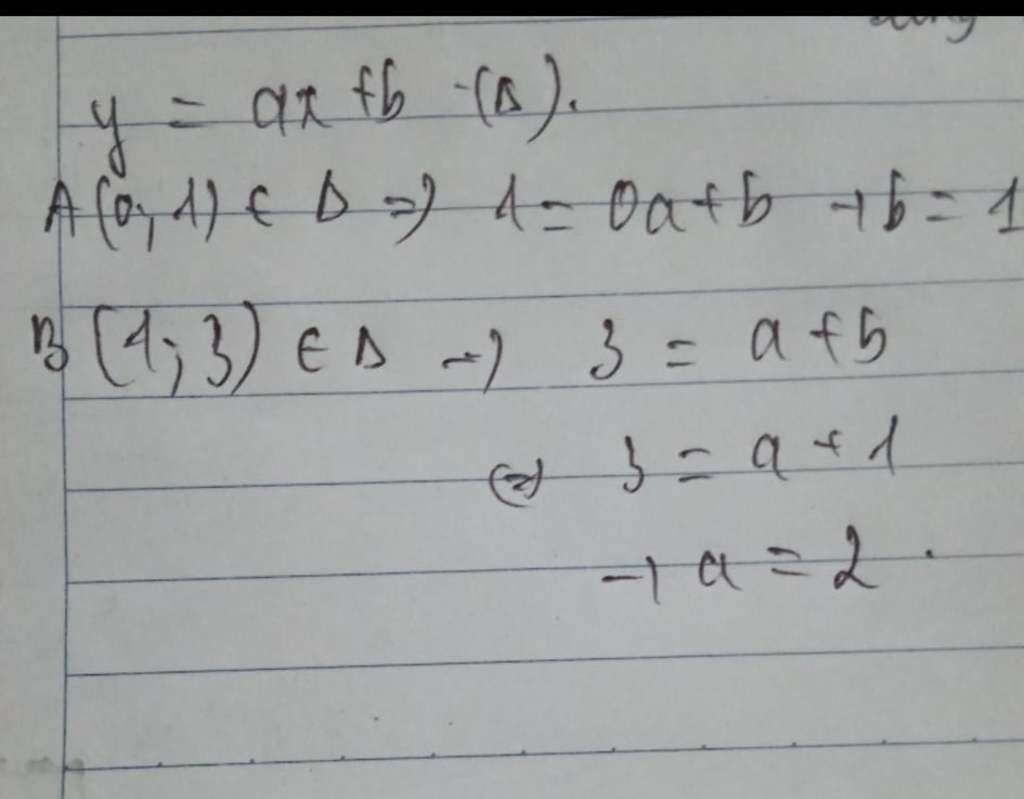 y = ax + b (Δ).
A(0; 1) ∈ Δ => 1 = 0a + b → b = 1
B (1; 3) ∈ Δ → 3 = a + b
<=> 3 = a + 1
→ a = 2.